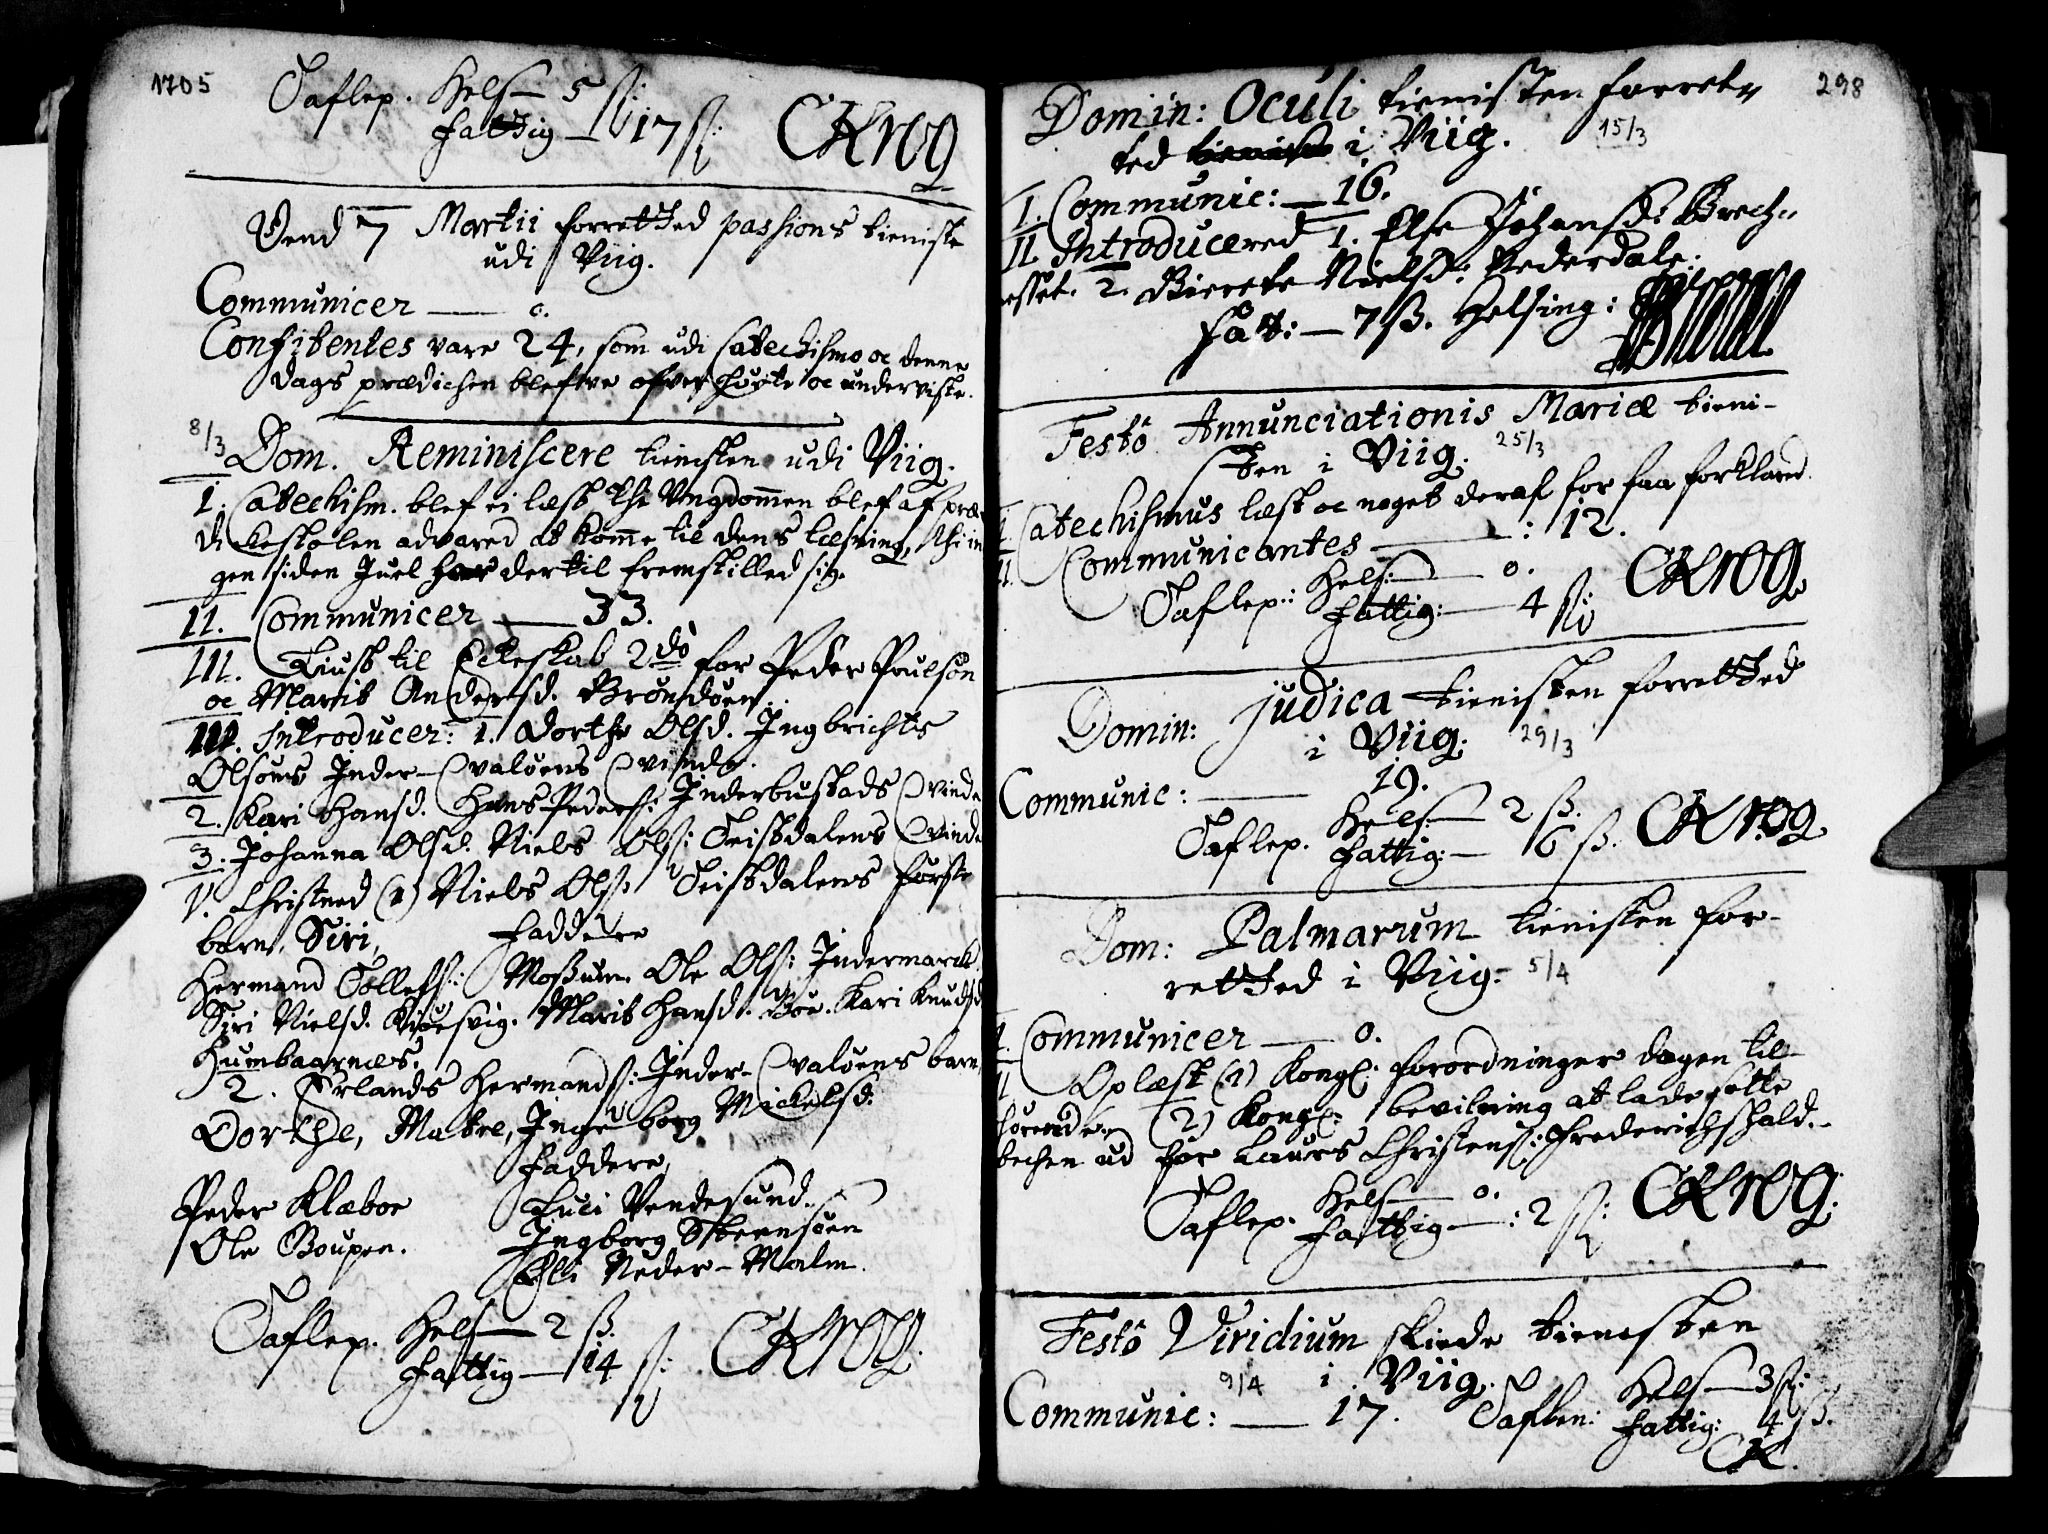 1705
Taflep. Hels — 5 ß:
Fattig — 17 ß: CKrog
Dend 7 Martii forretted passions tieniste
udi Viig.
Communicer — 0.
Confitentes vare 24, som udi Catechismo oc denne
dags prædichen blefve ofverhørte oc underviste.
8/3 Dom. Reminiscere tienisten udi Viig.
I. Catechism. blef ei læst thi Ungdommen blef af præ-
dikestolen advared at komme til dens læsning, thi in
gen siden Juel har dertil fremstilled sig.
II. Communicer — 33.
III. Liust til Ecteskab 2do for Peder Poulsøn
oc Marit Andersd. Brøndøen.
IIII. Introducer: 1. Dorthe Olsd. Ingbrichts
Olsøns Inder-Qvaløens Qvinde.
2. Kari Hansd. Hans Peders: Inderbustads Qvinde
3. Johanna Olsd. Niels Ols: Teistdalens Qvinde
V. Christned (1) Niels Ols: Teistdalens første
barn, Siri,
Faddere
Hermand Tollefs: Moßum. Ole Ols: Indermarck
Siri Nielsd. Kiøesvig. Marit Hansd. Boe. Kari Knudsd
Humbaarnæs.
2. Erlands Hermands: Inder-Qvaløens barn,
Dorthe, Matre, Ingeborg Mickelsd.
Faddere,
Peder Klæboe Luci Vendesund.
Ole Boupen. Ingborg Steensøen
Elli Neder-Malm.
Taflep. Hels — 2 ß.
Fattig — 14 ß: CKrog.
298
Domin: Oculi tienisten forret-
ted i Viig. 15/3
I. Communic: — 16.
II Introducered 1. Else Johansd: Brech-
esset. 2. Bierete Nielsd: Nederdale.
Fatt: — 7 ß. Helsing:
Festo Annunciationis Mariæ tieni-
sten i Viig. 25/3
I. Catechismus læst oc noget deraf for faa forklared.
II. Communicantes — : 12.
Taflep: Hels: — 0.
Fattig: — 4 ß: CKrog.
Domin: Judica tienisten forretted
i Viig: 29/3
Communic: — 19.
Taflep. Hels: — 2 ß.
Fattig: — 6 ß. CKrog
Dom: Palmarum tienisten for-
retted i Viig: 5/4
I. Communicer — 0.
II Oplæst (1) Kongl: forordninger dagen til-
hørende. (2) Kongl: bevilning at lade sette
bechen ud for Laurs Christens: Frederichshald.
Taflep. Hels — 0.
Fattig — : 2 ß: CKrog:
Festo Viridium skiede tienesten
9/4 i Viig.
Communic: — 17. Taflen: Hels — 3 ß:
Fattig: 4 ß.
CK.